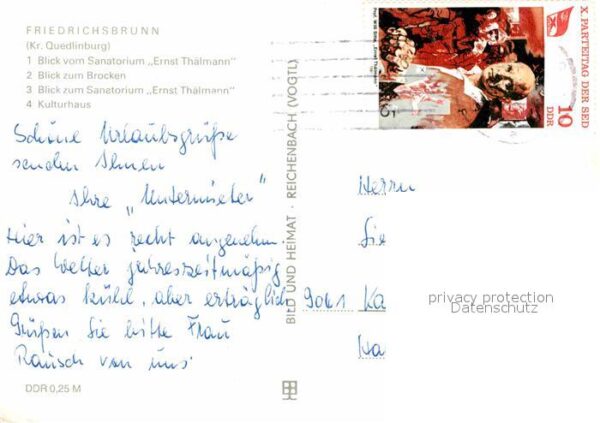 FRIEDRICHSBRUNN
(Kr. Quedlinburg)
1 Blick vom Sanatorium „Ernst Thälmann"
2 Blick zum Brocken
3 Blick zum Sanatorium „Ernst Thälmann"
4 Kulturhaus
Schöne Urlaubsgrüße
senden Ihnen
Ihre „Untermieter"
Hier ist es recht angenehm.
Das Wetter jahreszeitmäßig
etwas kühl, aber erträglich
Grüßen Sie bitte Frau
Rausch von uns
DDR 0,25 M
BILD UND HEIMAT · REICHENBACH (VOGTL)
X. PARTEITAG DER SED
10
DDR
Herrn
Sie
9061 Ka
Ha
privacy protection
Datenschutz